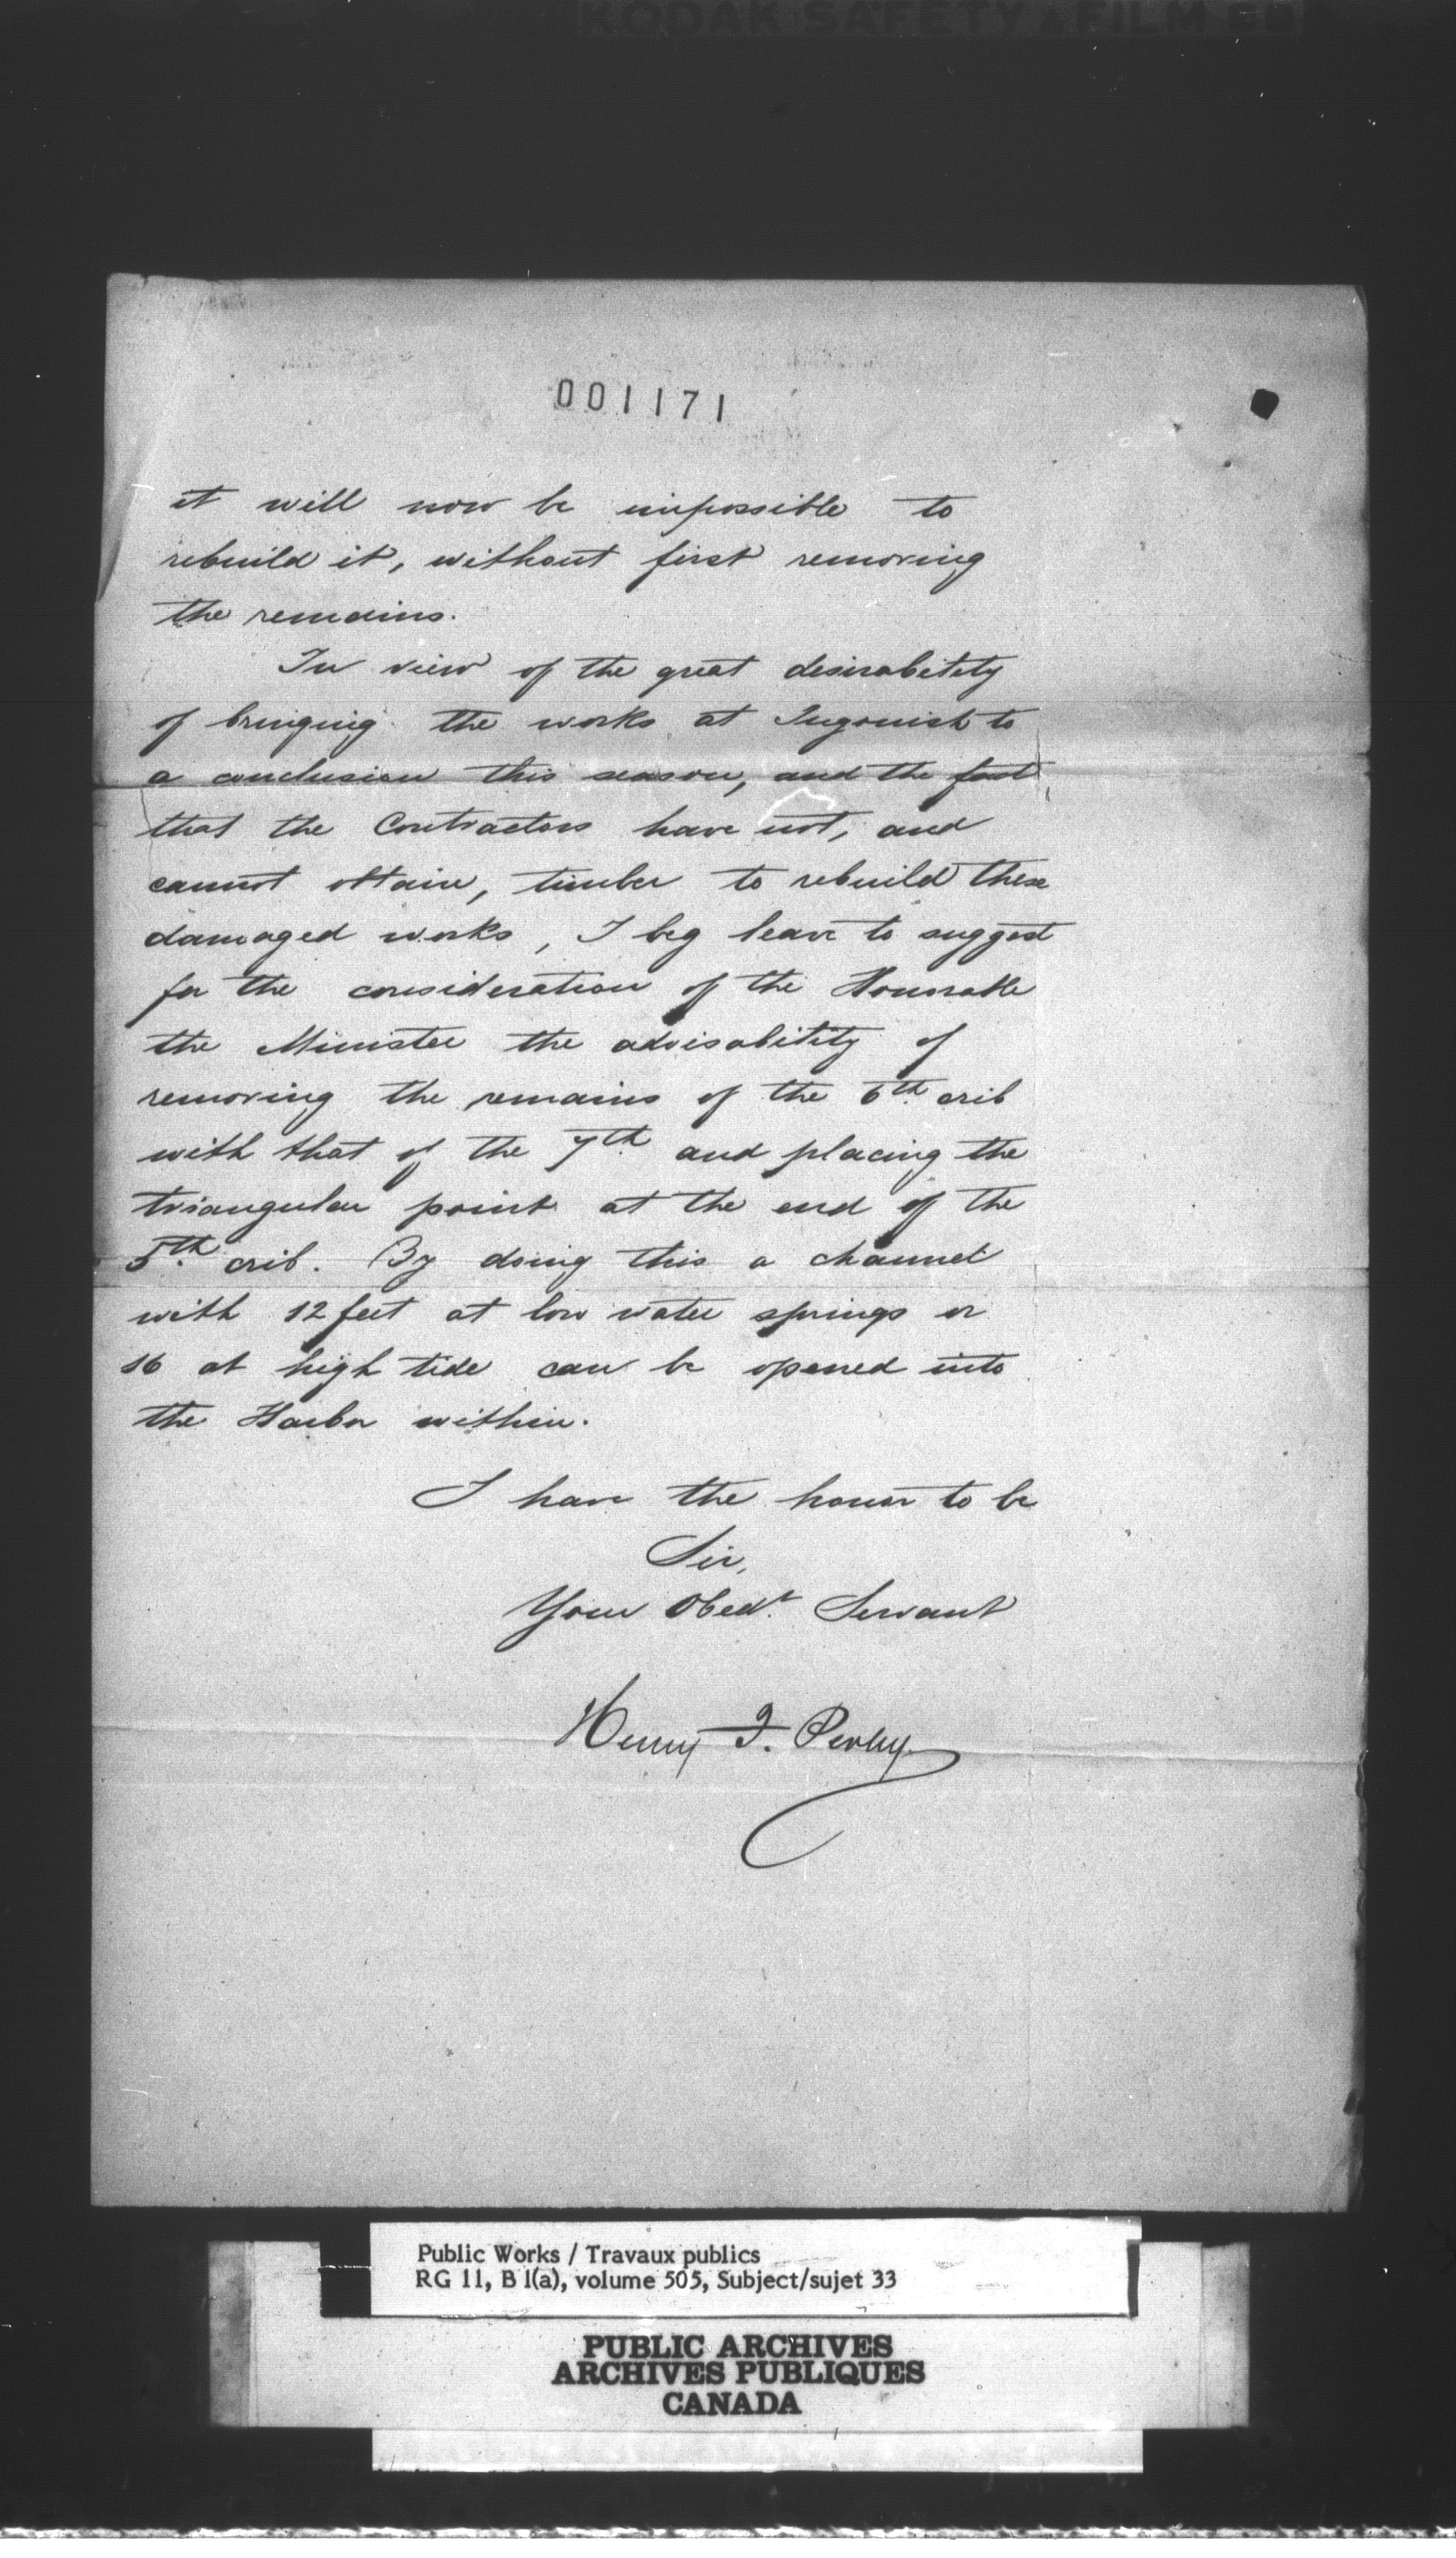 KODAK SAFETY FILM
001171
it will now be impossible to
rebuild it, without first removing
the remains.
In view of the great desirability
of bringing the works at Ingonish to
a conclusion this season, and the fact
that the Contractors have not, and
cannot obtain, timber to rebuild these
damaged works, I beg leave to suggest
for the consideration of the Honorable
the Minister the advisability of
removing the remains of the 6th crib
with that of the 7th and placing the
triangular point at the end of the
5th crib. By doing this a channel
with 12 feet at low water springs or
16 at high tide can be opened into
the Harbor within.
I have the honor to be
Sir,
Your Obedt. Servant
Henry F. Perley
Public Works / Travaux publics
RG 11, B 1(a), volume 505, Subject/sujet 33
PUBLIC ARCHIVES
ARCHIVES PUBLIQUES
CANADA